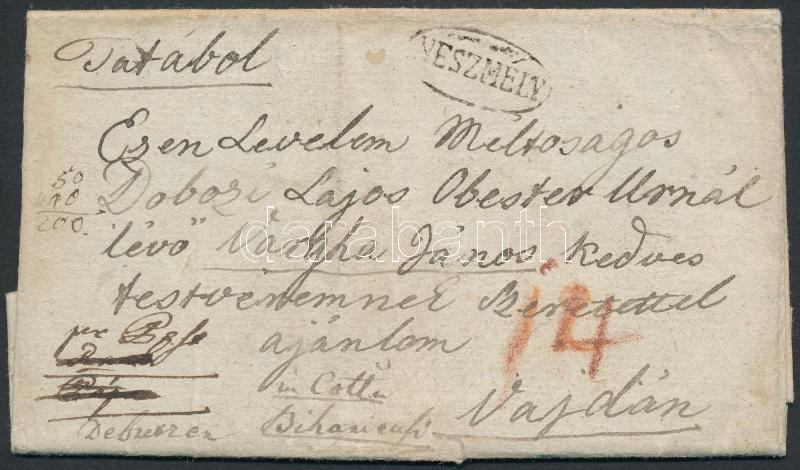 Tatából
NESZMÉLY
Ezen Levelem Méltoságos
Dobozi Lajos Obester Urnál
lévő Vargha János kedves
testvéremnek Szeretettel
ajánlom
Vajdán
50
40
200.
14
per
in Cottu
Debretzen
darabanth